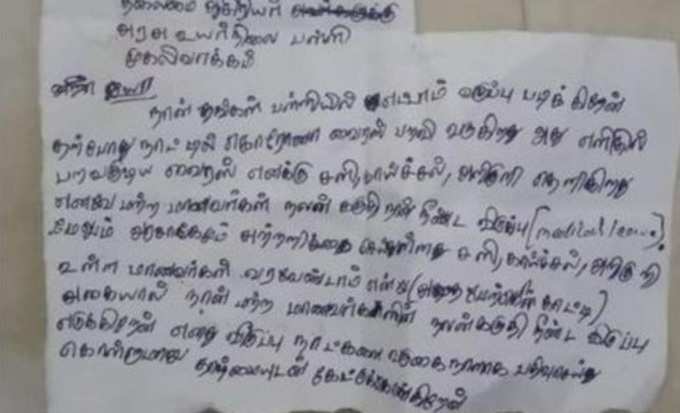 தலைமை ஆசிரியர்
அரசு உயர்நிலை பள்ளி
முகலிவாக்கம்
ஐயா
நான் தங்கள் பள்ளியில் வகுப்பு படிக்கிறேன்
தற்போது நாட்டில் கொரோனா வைரஸ் பரவி வருகிறது அது எளிதில்
பரவகூடிய வைரஸ் எனக்கு சளி, காய்ச்சல், அறிகுறி தெரிகிறது
எனவே மற்ற மாணவர்கள் நலன் கருதி நான் நீண்ட விடுப்பு (medical leave).
மேலும் அரசாங்கமும் சளி, காய்ச்சல், அறிகுறி
உள்ள மாணவர்கள் வரவேண்டாம் என்று
ஆகையால் நான் மற்ற மாணவர்களின் நலன்கருதி நீண்ட விடுப்பு
எடுக்கிறேன் எனது விடுப்பு நாட்களை வருகை நாளாக பதிவுசெய்து
கொள்ளுமாறு தாழ்மையுடன் கேட்டுக்கொள்கிறேன்